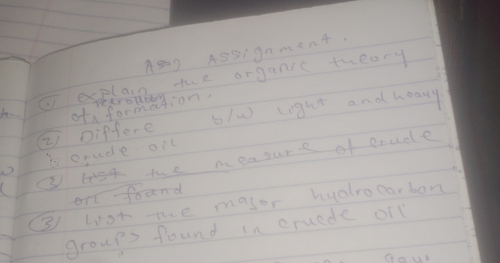 Assignment.
① explain the organic theory
of formation.
② Differe b/w light and heavy
crude oil
③ List the measure of crude
oil found
③ List the major hydrocarbon
groups found in cruede oil